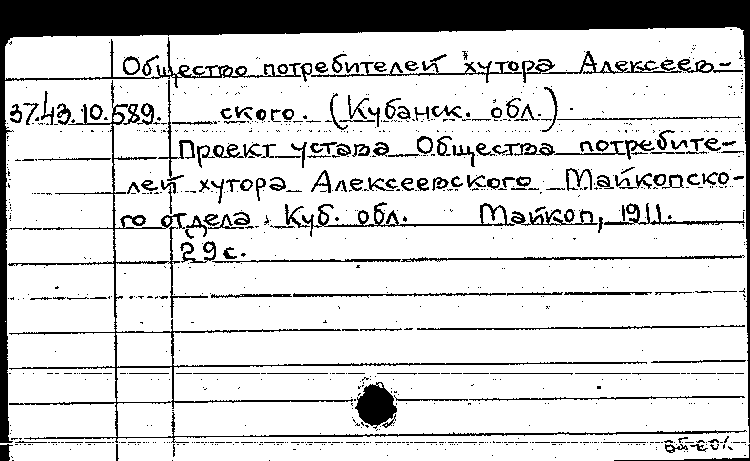 Общество потребителей хутора Алексеев-
37.43.10.589. ского. (Кубанск. обл.)
Проект устава Общества потребите-
лей хутора Алексеевского Майкопско-
го отдела Куб. обл. Майкоп, 1911.
29 с.